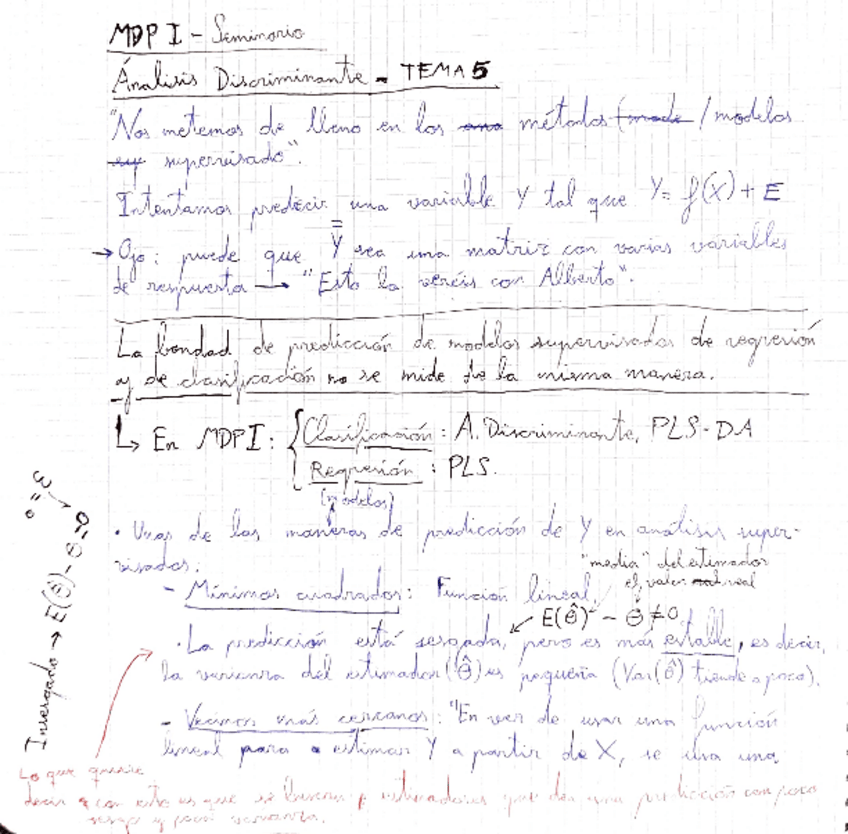 MDP I - Seminario
Ánalisis Discriminante - TEMA 5
"Nos metemos de lleno en los métodos / modelos
supervisado".
Intentamos predecir una variable Y tal que Y = f(X) + E
→ Ojo: puede que Y sea una matriz con varias variables
de respuesta → "Esto la veréis con Alberto".
La bondad de predicción de modelos supervisados de regresión
y de clasificación no se mide de la misma manera.
↳ En MDPI: { Clasificación: A. Discriminante, PLS-DA
Regresión: PLS.
(modelos)
• Unas de las maneras de predicción de Y en análisis super-
visados.
"media" del estimador
el valor real
- Mínimos cuadrados: Función lineal.
E(θ̂) - θ ≠ 0
• La predicción está sesgada, pero es más estable, es decir,
la varianza del estimador (θ̂) es pequeña (Var(θ̂) tiende a poco).
- Vecinos más cercanos: "En vez de usar una función
lineal para a estimar Y a partir de X, se usa una
Insesgado → E(θ̂) - θ = 0
Lo que quiere
decir con esto es que se buscan estimadores que den una predicción con poco
sesgo y poca varianza.